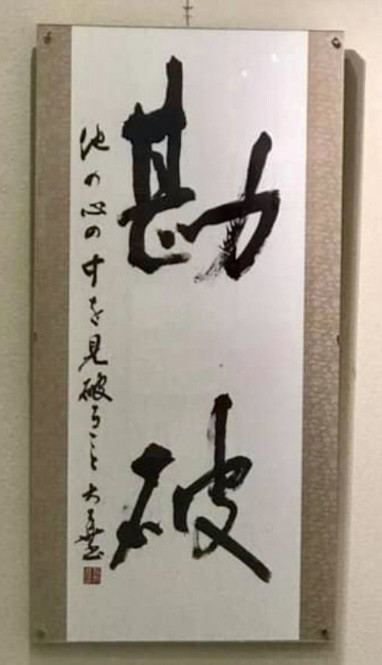 勘破
他の心の中を見破ること